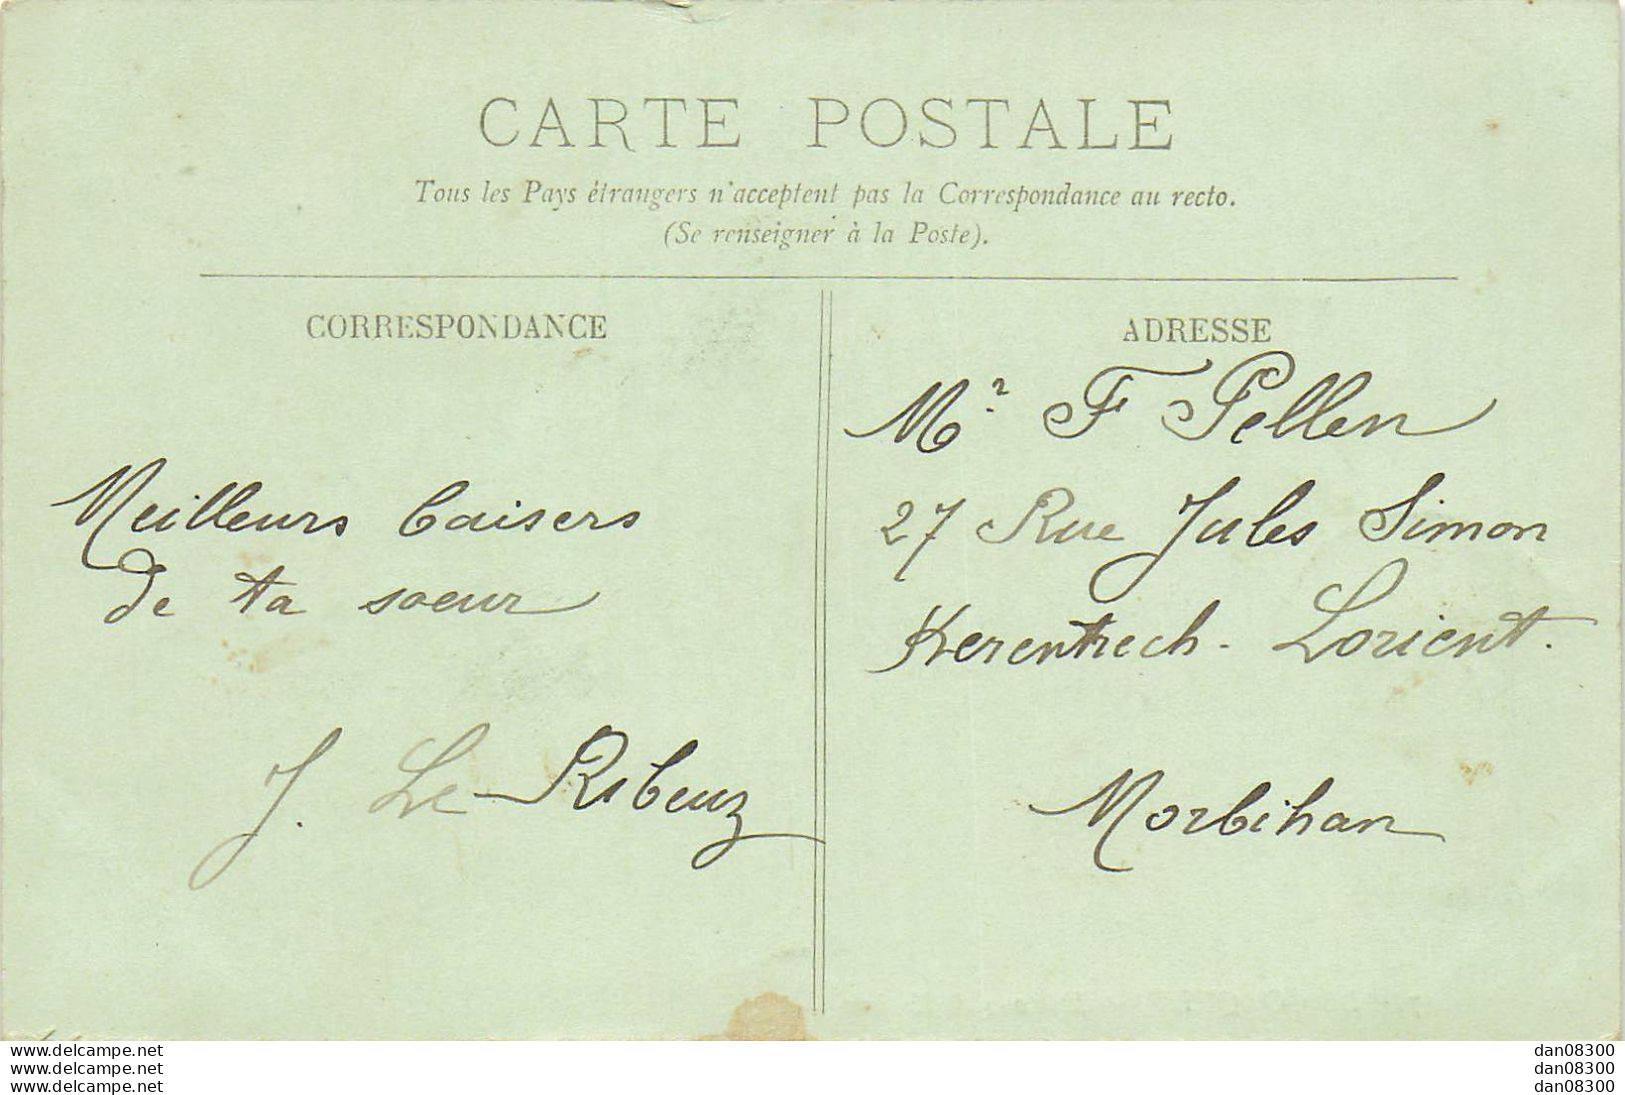 CARTE POSTALE
Tous les Pays étrangers n'acceptent pas la Correspondance au recto.
(Se renseigner à la Poste).
CORRESPONDANCE
Meilleurs baisers
de ta soeur
J. Le Ribeuz
ADRESSE
Mr. F Pellen
27 Rue Jules Simon
Kerentrech - Lorient.
Morbihan
www.delcampe.net
www.delcampe.net
www.delcampe.net
dan08300
dan08300
dan08300